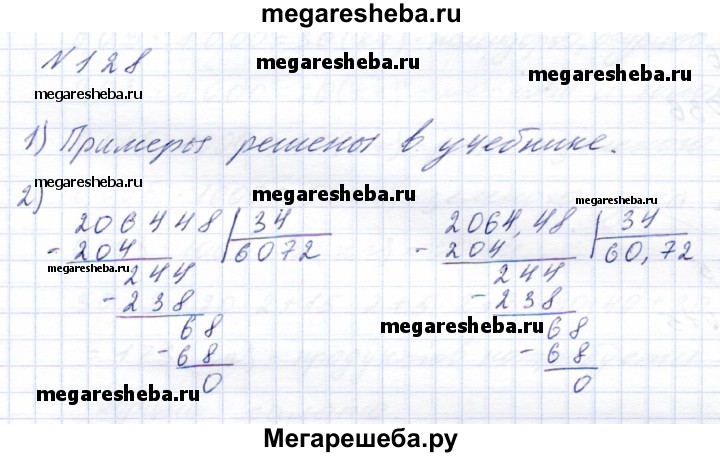 megaresheba.ru
N 128
megaresheba.ru
megaresheba.ru
megaresheba.ru
1) Примеры решены в учебнике.
megaresheba.ru
2)
megaresheba.ru
megaresheba.ru
206448 | 34
- 204 6072
megaresheba.ru
244
- 238
68
- 68
0
2064,48 | 34
- 204 60,72
megaresheba.ru
244
- 238
68
- 68
0
megaresheba.ru
megaresheba.ru
Мегарешеба.ру